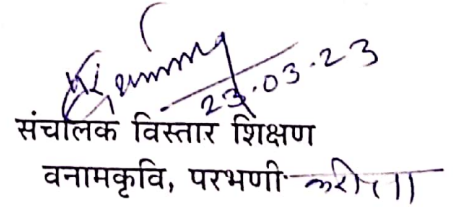 23.03.23
संचालक विस्तार शिक्षण
वनामकृवि, परभणी करीता